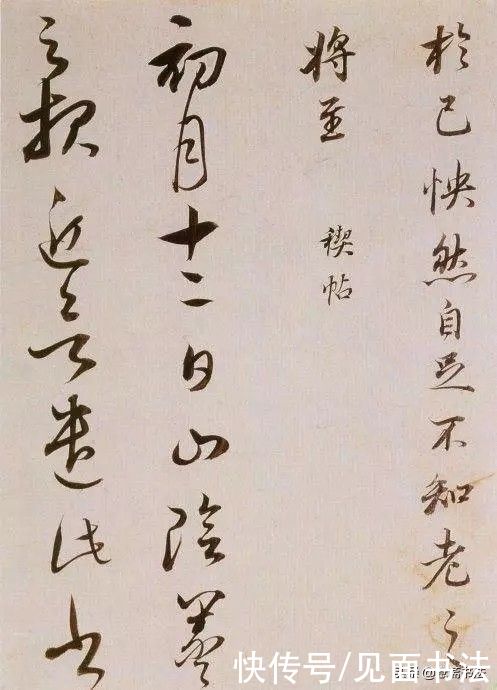 於己怏然自足不知老之
將至
稧帖
初月十二日山陰羲
之報近欲遣此書
快传号/见面书法